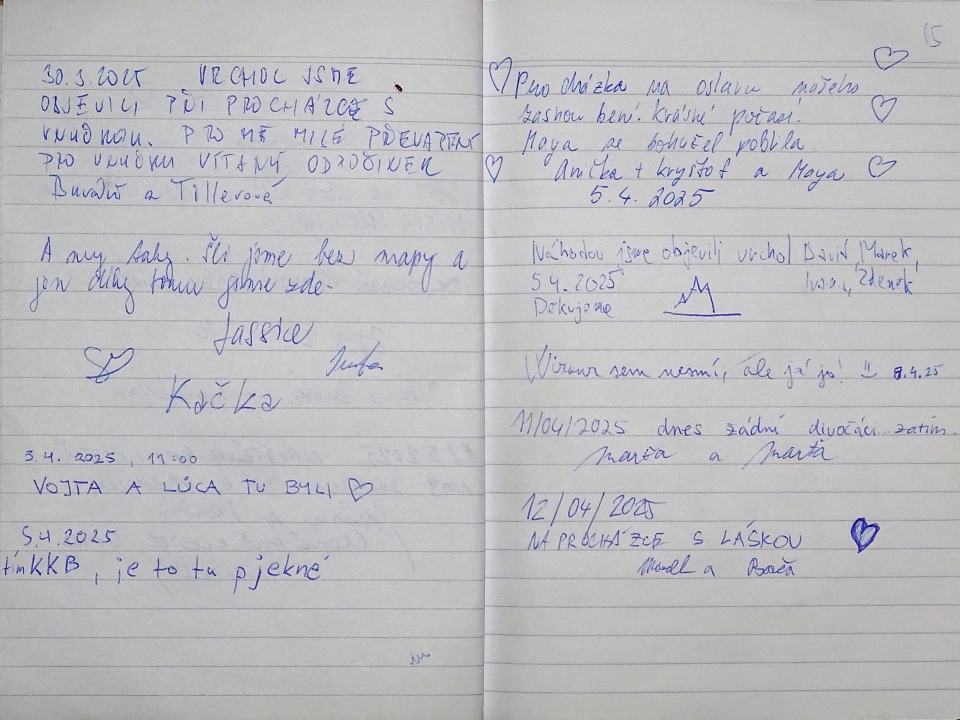 30.3.2025 VRCHOL JSME
OBJEVILI PŘI PROCHÁZCE S
VNUČKOU. PRO MĚ MILÉ PŘEVAPENÍ
PRO VNUČKU VÍTANÝ ODPOČINEK
a Tillerová
A my taky. Šli jsme bez mapy a
jen díky tomu jsme zde.
Jassice
Kačka
5.4. 2025, 11:00
VOJTA A LÚCA TU BYLI
5.4.2025
tímKKB, je to tu pjekné
15
Procházka na oslavu našeho
zasnoubení. Krásné počasí.
Maya se bohužel poblila.
Anička + Kryštof a Maya
5.4.2025
Náhodou jsme objevili vrchol David, Marek,
5.4.2025 Zdeněk
Děkujeme
sem nesmí, ale já jo! 8.4.25
11/04/2025 dnes žádní divočáci zatím.
Marťa a Marťa
12/04/2025
NA PROCHÁZCE S LÁSKOU
a